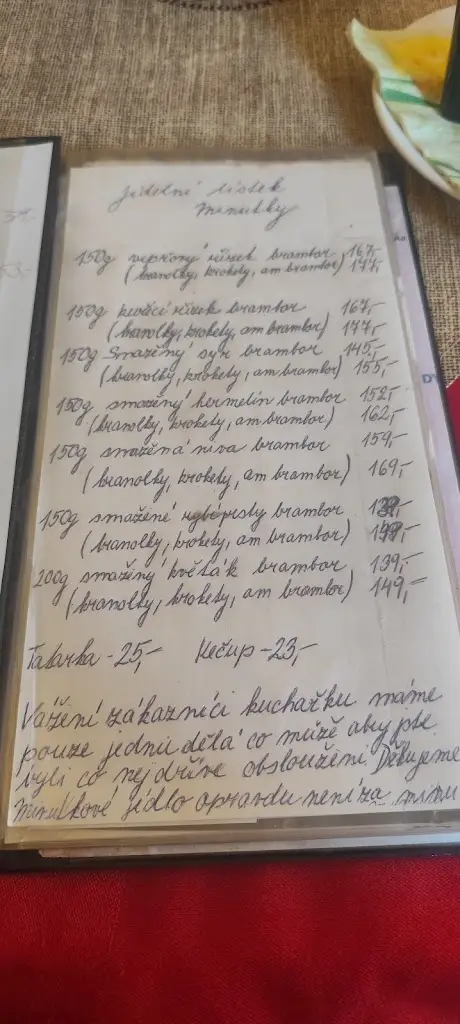 Jídelní lístek
Minutky
150g vepřový řízek brambor 167,-
(hranolky, krokety, am brambor) 177,-
150g kuřecí řízek brambor 167,-
(hranolky, krokety, am brambor) 177,-
150g Smažený syr brambor 145,-
(hranolky, krokety, am brambor) 155,-
150g smažený hermelin brambor 152,-
(hranolky, krokety, am brambor) 162,-
150g smažená niva brambor 159,-
(hranolky, krokety, am brambor) 169,-
150g smažené rybí prsty brambor
(hranolky, krokety, am brambor)
200g smažený květák brambor 139,-
(hranolky, krokety, am brambor) 149,-
Tatarka - 25,- Kečup - 23,-
Vážení zákazníci kuchařku máme
pouze jednu dělá co může aby jste
byli co nejdříve obslouženi. Děkujeme
Minutkové jídlo opravdu není za minu